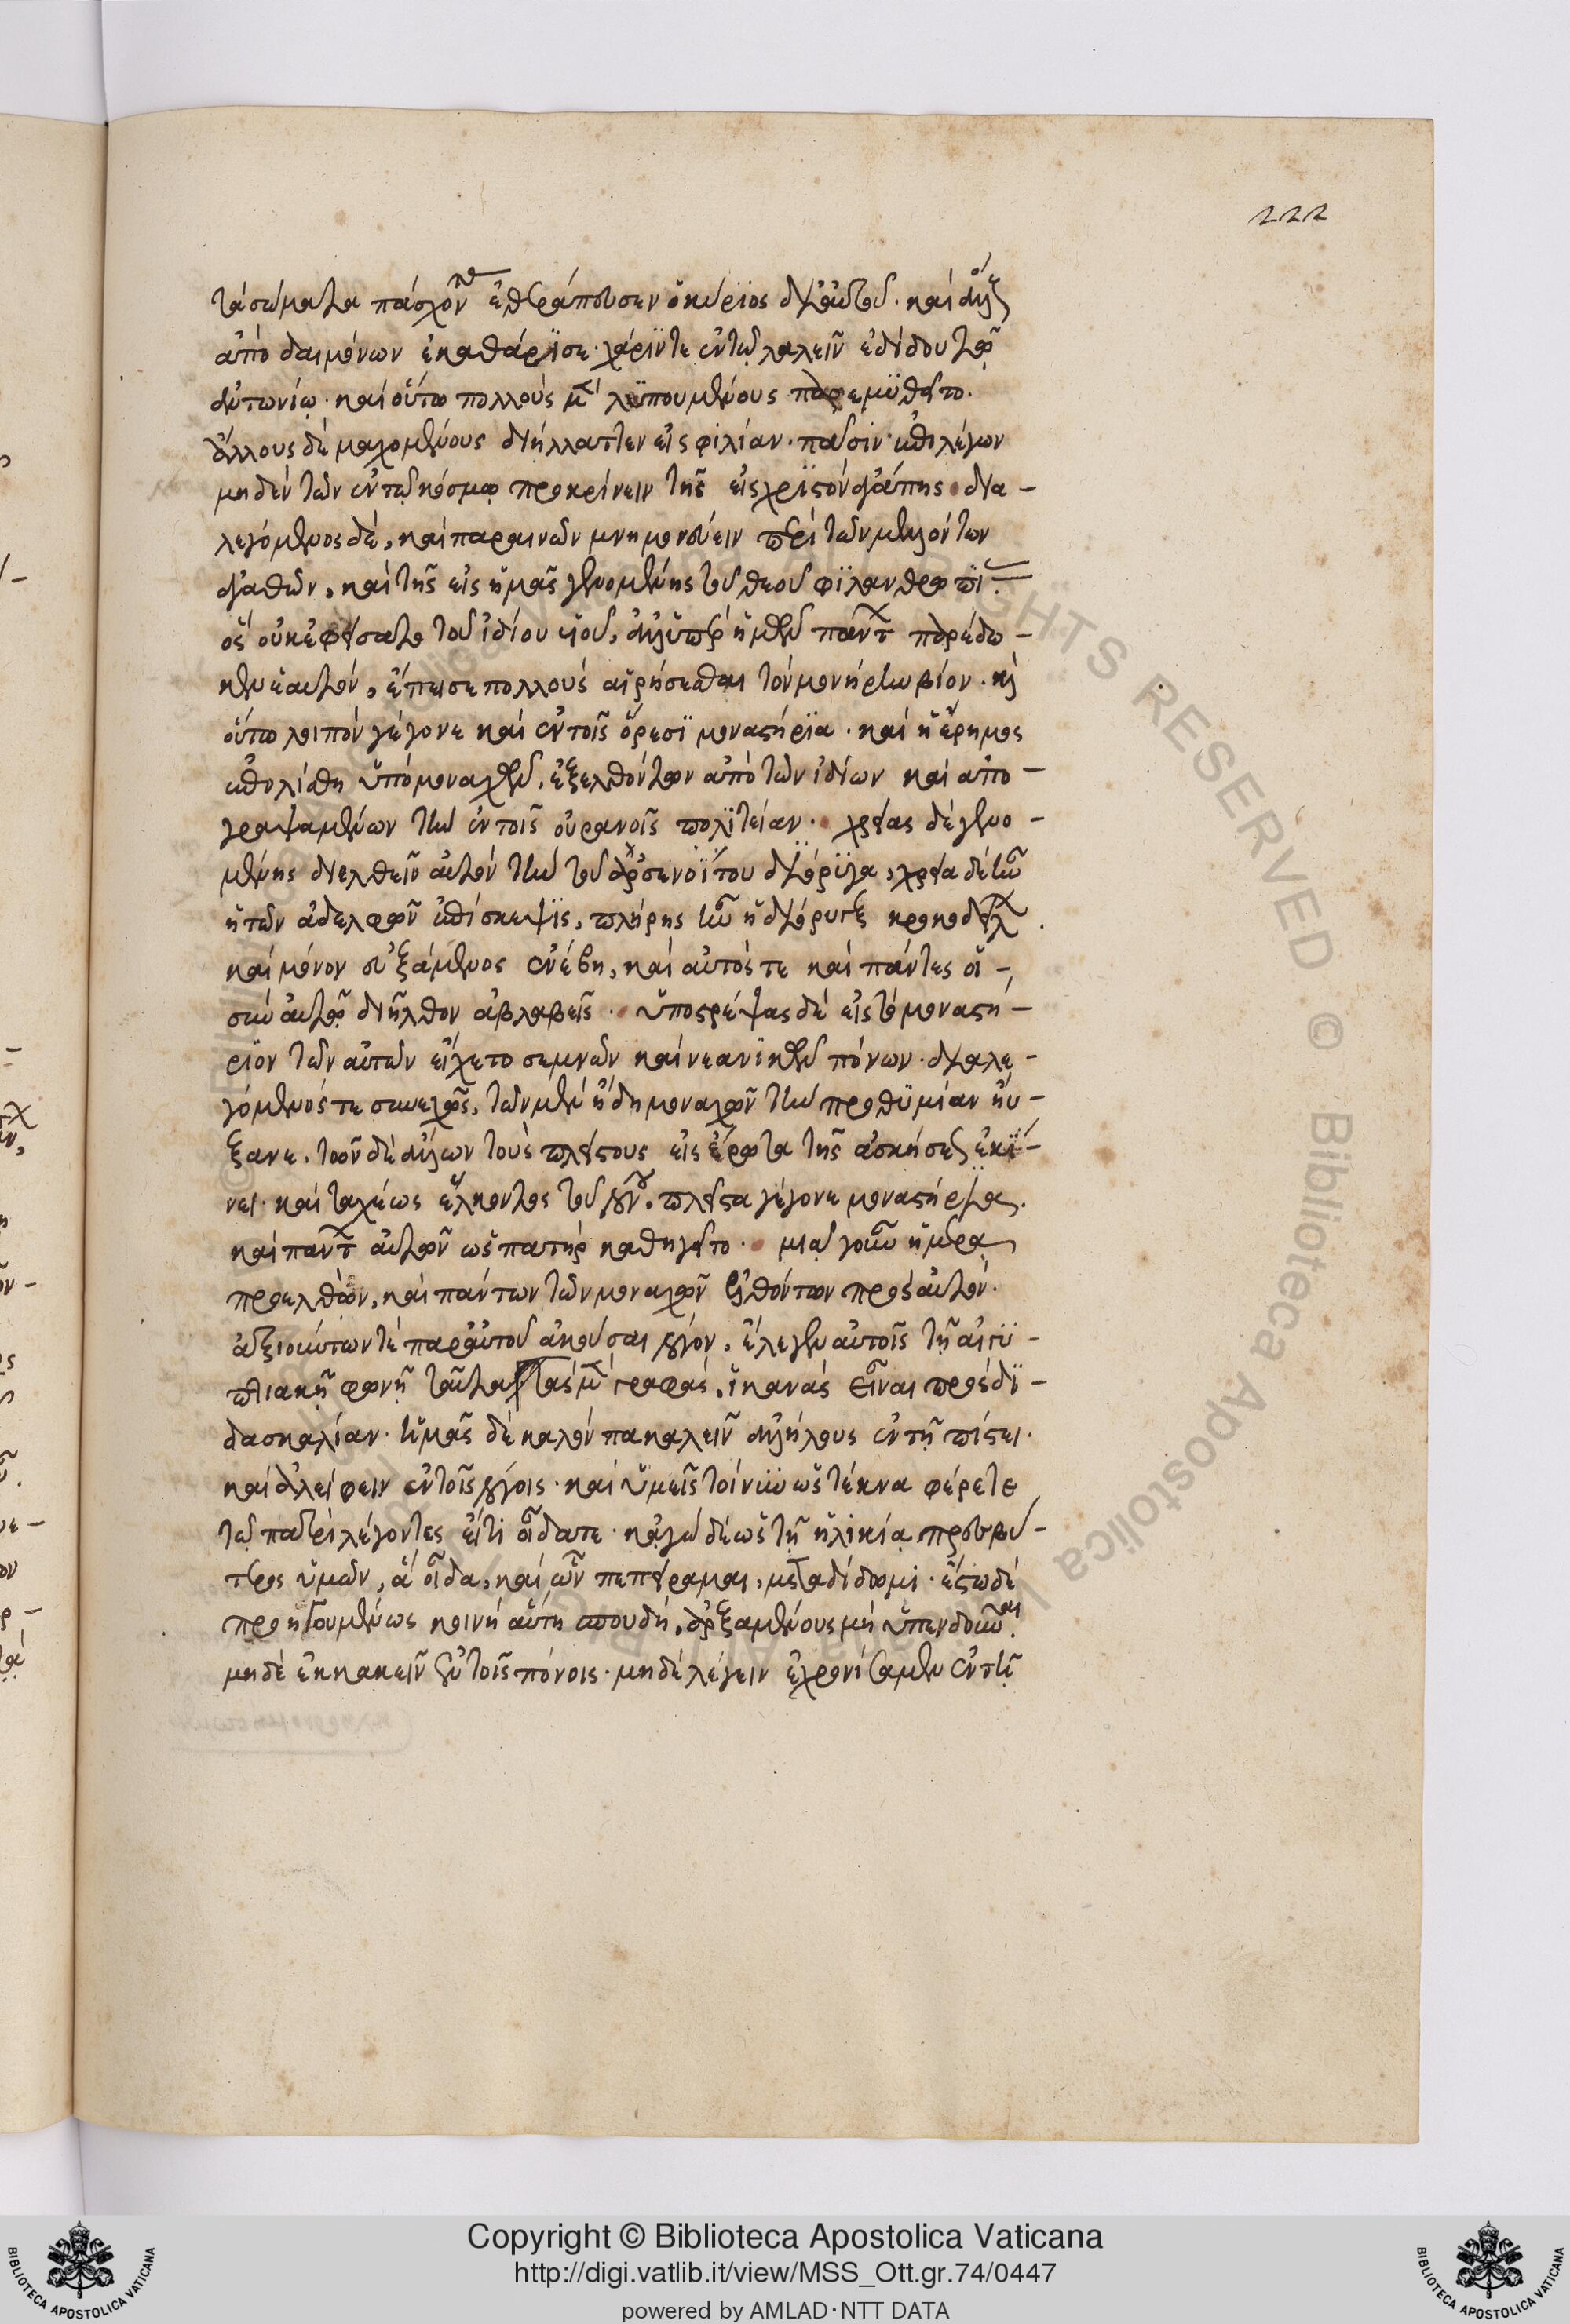 222
τὰ σώματα πάσχοντ ἐθεράπευσεν ὁ κύριος δι' αὐτοῦ. καὶ ἄλλους
ἀπὸ δαιμόνων ἐκαθάρϊσε· χάρϊν τε ἐν τῷ λαλεῖν ἐδίδου τῷ
ἀντωνίῳ· καὶ οὕτω πολλοὺς μὲν λϋπουμένους παρεμϋθεῖτο.
ἄλλους δὲ μαχομένους διήλλαττεν εἰς φιλίαν. πᾶσιν ἐπιλέγων
μηδὲν τῶν ἐν τῷ κόσμῳ προκρίνειν τῆς εἰς χρϊστὸν ἀγάπης. δια-
λεγόμενος δὲ, καὶ παραινῶν μνημονεύειν περὶ τῶν μελλόντων
ἀγαθῶν, καὶ τῆς εἰς ἡμᾶς γενομένης τοῦ θεοῦ φϊλανθρωπϊ
ὃς οὐκ ἐφείσατο τοῦ ἰδίου υἱοῦ, ἀλλ' ὑπὲρ ἡμῶν πάντ παρέδω-
κεν ἑαυτὸν, ἔπεισε πολλοὺς αἱρήσεσθαι τὸν μονήρην βίον. καὶ
οὕτω λοιπὸν γέγονε καὶ ἐν τοῖς ὄρεσϊ μοναστήρϊα. καὶ ἡ ἔρημος
ἐπολίσθη ὑπὸ μοναχῶν, ἐξελθόντων ἀπὸ τῶν ἰδίων καὶ ἀπο-
γραψαμένων τὴν ἐν τοῖς οὐρανοῖς πολϊτείαν. χρείας δὲ γενο-
μένης διελθεῖν αὐτὸν τὴν τοῦ ἀρσενοΐτου διώρϋγα, χρεία δὲ ἦν
ἡ τῶν ἀδελφῶν ἐπίσκεψϊς, πλήρης ἦν ἡ διώρυγξ κροκοδείλ.
καὶ μόνον εὐξάμενος ἐνέβη, καὶ αὐτός τε καὶ πάντες οἱ-
σὺν αὐτῷ διῆλθον ἀβλαβεῖς. ὑποστρέψας δὲ εἰς τὸ μοναστή-
ρϊον τῶν αὐτῶν εἴχετο σεμνῶν καὶ νεανϊκῶν πόνων. διαλε-
γόμενός τε συνεχῶς, τῶν μὲν ἤδη μοναχῶν τὴν προθϋμίαν ηὔ-
ξανε. τῶν δὲ ἄλλων τοὺς πλείστους εἰς ἔρωτα τῆς ἀσκήσεως ἐκΐ-
νει. καὶ ταχέως ἕλκοντος τοῦ λόγου. πλεῖστα γέγονε μοναστήρια.
καὶ πάντ αὐτῶν ὡς πατὴρ καθηγεῖτο. μιᾷ γοῦν ἡμέρᾳ
προελθὼν, καὶ πάντων τῶν μοναχῶν ἐλθόντων πρὸς αὐτὸν.
ἀξιούντων τὲ παρ' αὐτοῦ ἀκοῦσαι λόγον, ἔλεγεν αὐτοῖς τῇ αἰγϋ-
πτιακῇ φωνῇ ταῦτα τὰς μὲν γραφὰς, ἱκανὰς εἶναι πρὸς δϊ-
δασκαλίαν. ἡμᾶς δὲ καλὸν πακαλεῖν ἀλλήλους ἐν τῇ πίστει.
καὶ ἀλείφειν ἐν τοῖς λόγοις. καὶ ὑμεῖς τοίνυν ὡς τέκνα φέρετε
τῷ πατρὶ λέγοντες εἴτι οἴδατε. κἀγὼ δὲ ὡς τῇ ἡλικίᾳ πρεσβύ-
τερος ὑμῶν, ἃ οἶδα, καὶ ὧν πεπείραμαι, μεταδίδωμι. ἔστω δὲ
προηγουμένως κοινὴ αὕτη σπουδὴ, ἀρξαμένους μὴ ὑπενδοῦναι.
μηδὲ ἐκκακεῖν ἐν τοῖς πόνοις. μηδὲ λέγειν ἐχρονίσαμεν ἐν τῇ
Copyright © Biblioteca Apostolica Vaticana
http://digi.vatlib.it/view/MSS_Ott.gr.74/0447
powered by AMLAD·NTT DATA